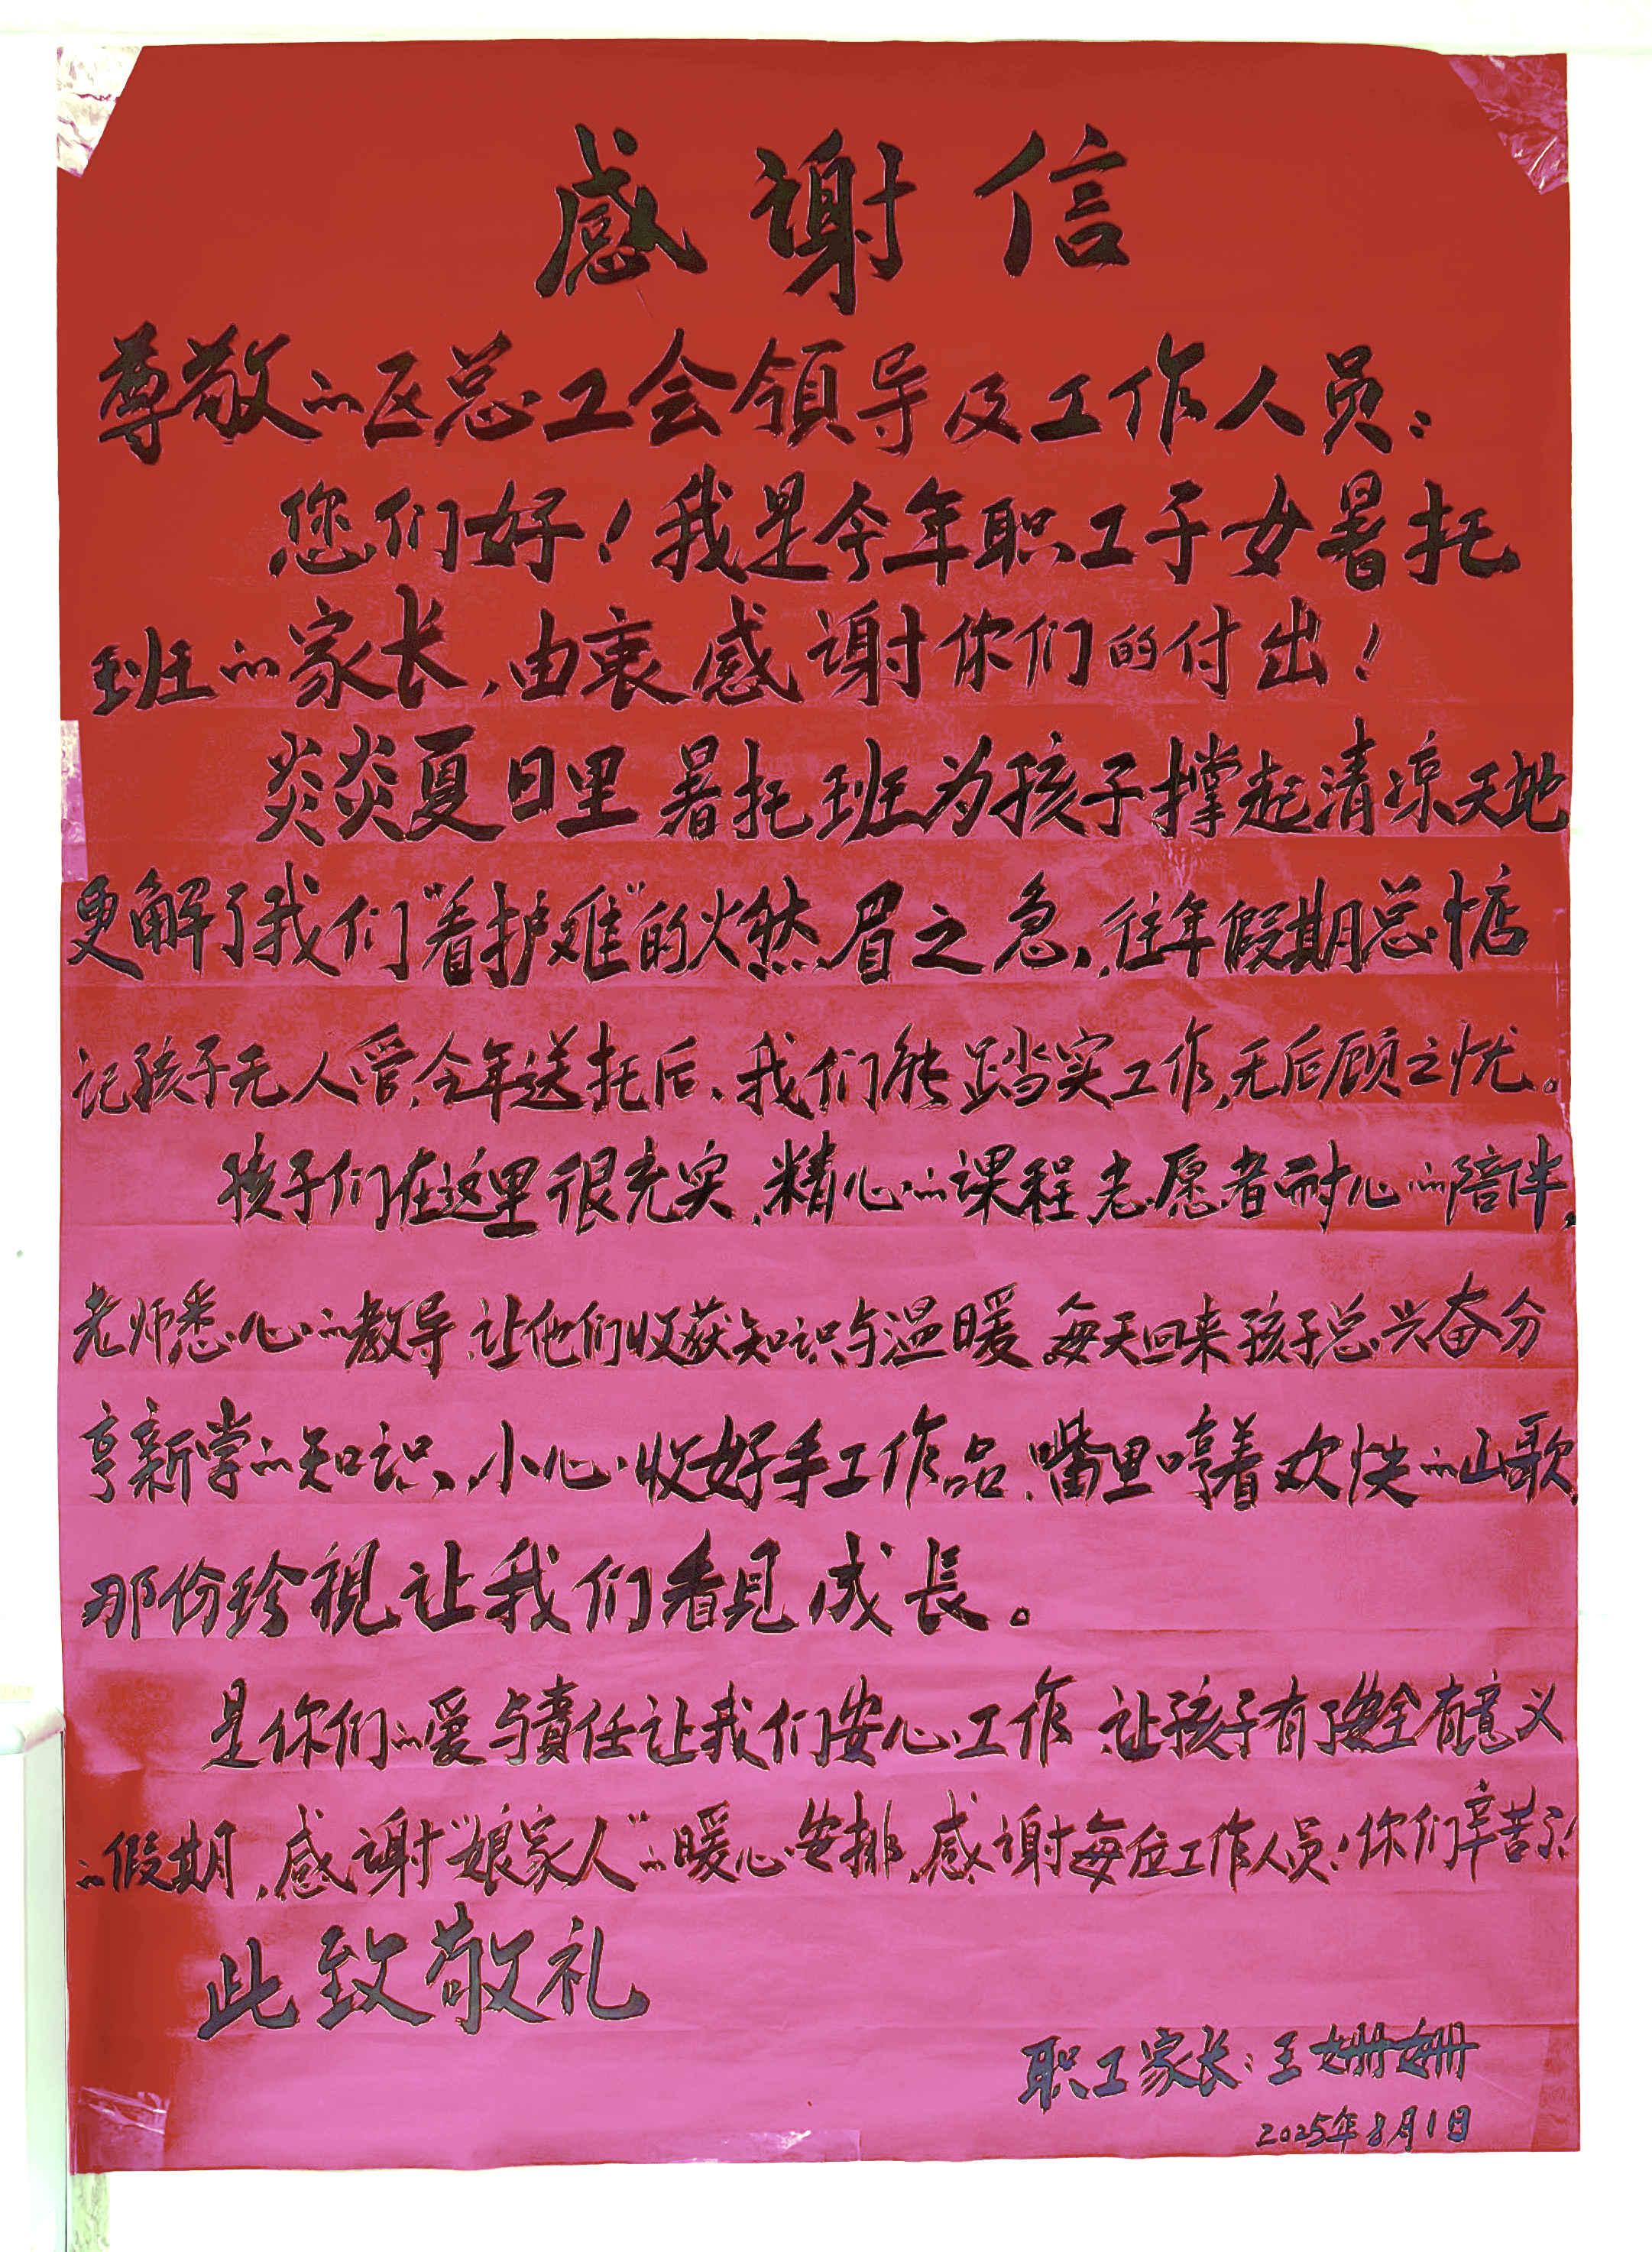 感谢信
尊敬的区总工会领导及工作人员：
您们好！我是今年职工子女暑托
班的家长，由衷感谢你们的付出！
炎炎夏日里暑托班为孩子撑起清凉天地
更解了我们“看护难”的燃眉之急，往年假期总惦
记孩子无人管，今年送托后、我们能踏实工作，无后顾之忧。
孩子们在这里很充实，精心的课程志愿者耐心的陪伴，
老师悉心的教导，让他们收获知识与温暖，每天回来孩子总兴奋分
享新学的知识、小心收好手工作品，嘴里哼着欢快的山歌，
那份珍視让我们看見成長。
是你们的爱与責任让我们安心工作，让孩子有了安全有意义
的假期，感谢“娘家人”的暖心安排，感谢每位工作人员！你们辛苦了！
此致敬礼
职工家长：王姗姗
2025年8月1日